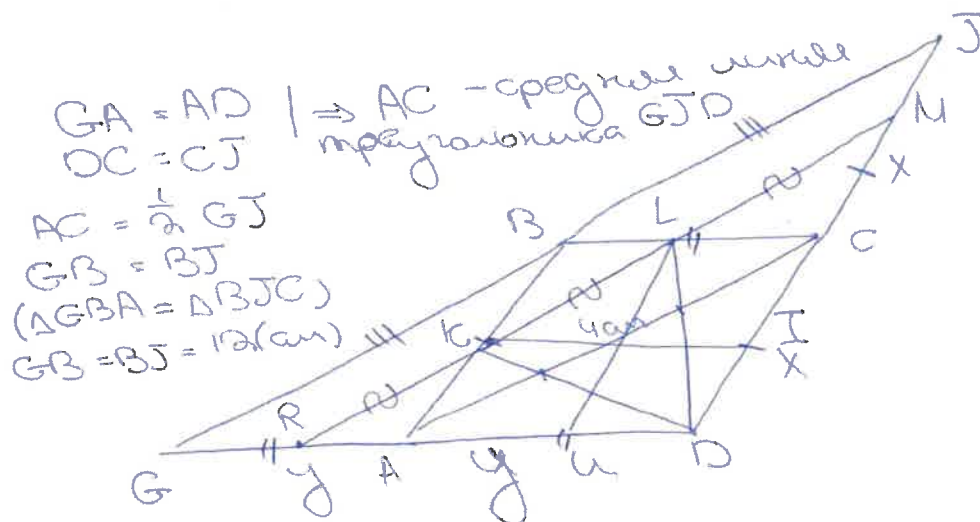 GA = AD | ⇒ AC - средняя линия
DC = CJ треугольника GJD
AC = 1/2 GJ
GB = BJ
(ΔGBA = ΔBJC)
GB = BJ = 12(см)
J
M
X
B
L
C
K
4см
I
X
R
G
y
A
y
U
D